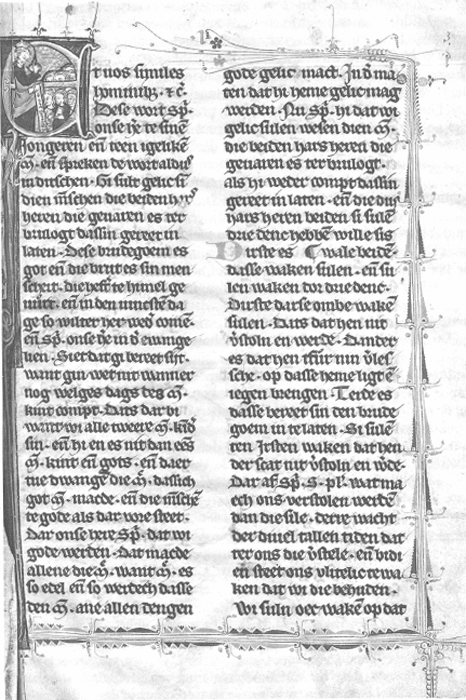 Et uos similes
hominibꝫ · ⁊ c̄.
Dese wort sp̄.
onse h̄e te sinē
Jongeren eñ teen igelikē
m̄. eñ spreken de wort aldus
in ditschen. Gi sult gelic si
dien mēschen die beiden hars
heren die geuaren es ter
brulogt dassin gereet in
laten. Dese brudegoem es
got eñ die brut es sin men
scheit. die heft te himel ge
uurt. eñ in den
ge so wilter her comē
sp̄. onse h̄e in dē ewange
lien. Siet dat gi bereet sijt.
want gin wet nit wanner
nog welges dags des m̄.
kint compt. Dats dat hi
want wi alle tweere m̄. kīd
sin. eñ hi en es nit dan eēs
m̄. kint eñ gots. eñ daer
tue dwange die m̄. dassich
got m̄. macde. eñ die mēsche
te gode als dar vore steet.
Dar onse here sp̄. dat wi
gode werden. Dat macde
allene die m̄. want m̄. es
so edel eñ so werdech dasse
den m̄. ane allen dengen
gode gelic mact. In dē ma
ten dat hi heme gelic mag
werden. Nu sp̄. hi dat wi
gelic sulen wesen dien m̄.
die beiden hars heren die
geuaren es ter brulogt.
als hi weder compt dassin
gereet in laten. eñ die dis
hars heren beiden si sulē
drie denc hebbē wille sis
Dirste es wale beidē
dasse waken sulen. eñ su
len waken dor drie denc.
Dirste darse ombe wakē
sulen. Dats dat hen nit
v̄stoln en werde. Dander
es dat hen
sche. op dasse heme ligt ē
iegen brengen. Terde es
dasse bereet sin den brude
goem in te laten. Si sulē
ten Irsten waken dat hen
der scat nit v̄stoln en w̄de.
Dar af sp̄. S. pl̄. wat ma
ech ons verstolen werdē
dan die sile. derre wacht
der diuel tallen tiden dat
ter ons die v̄stele. eñ bidi
en steet ons vlitelic te wa
ken dat wi die behuden.
Wi suln oec wakē op dat